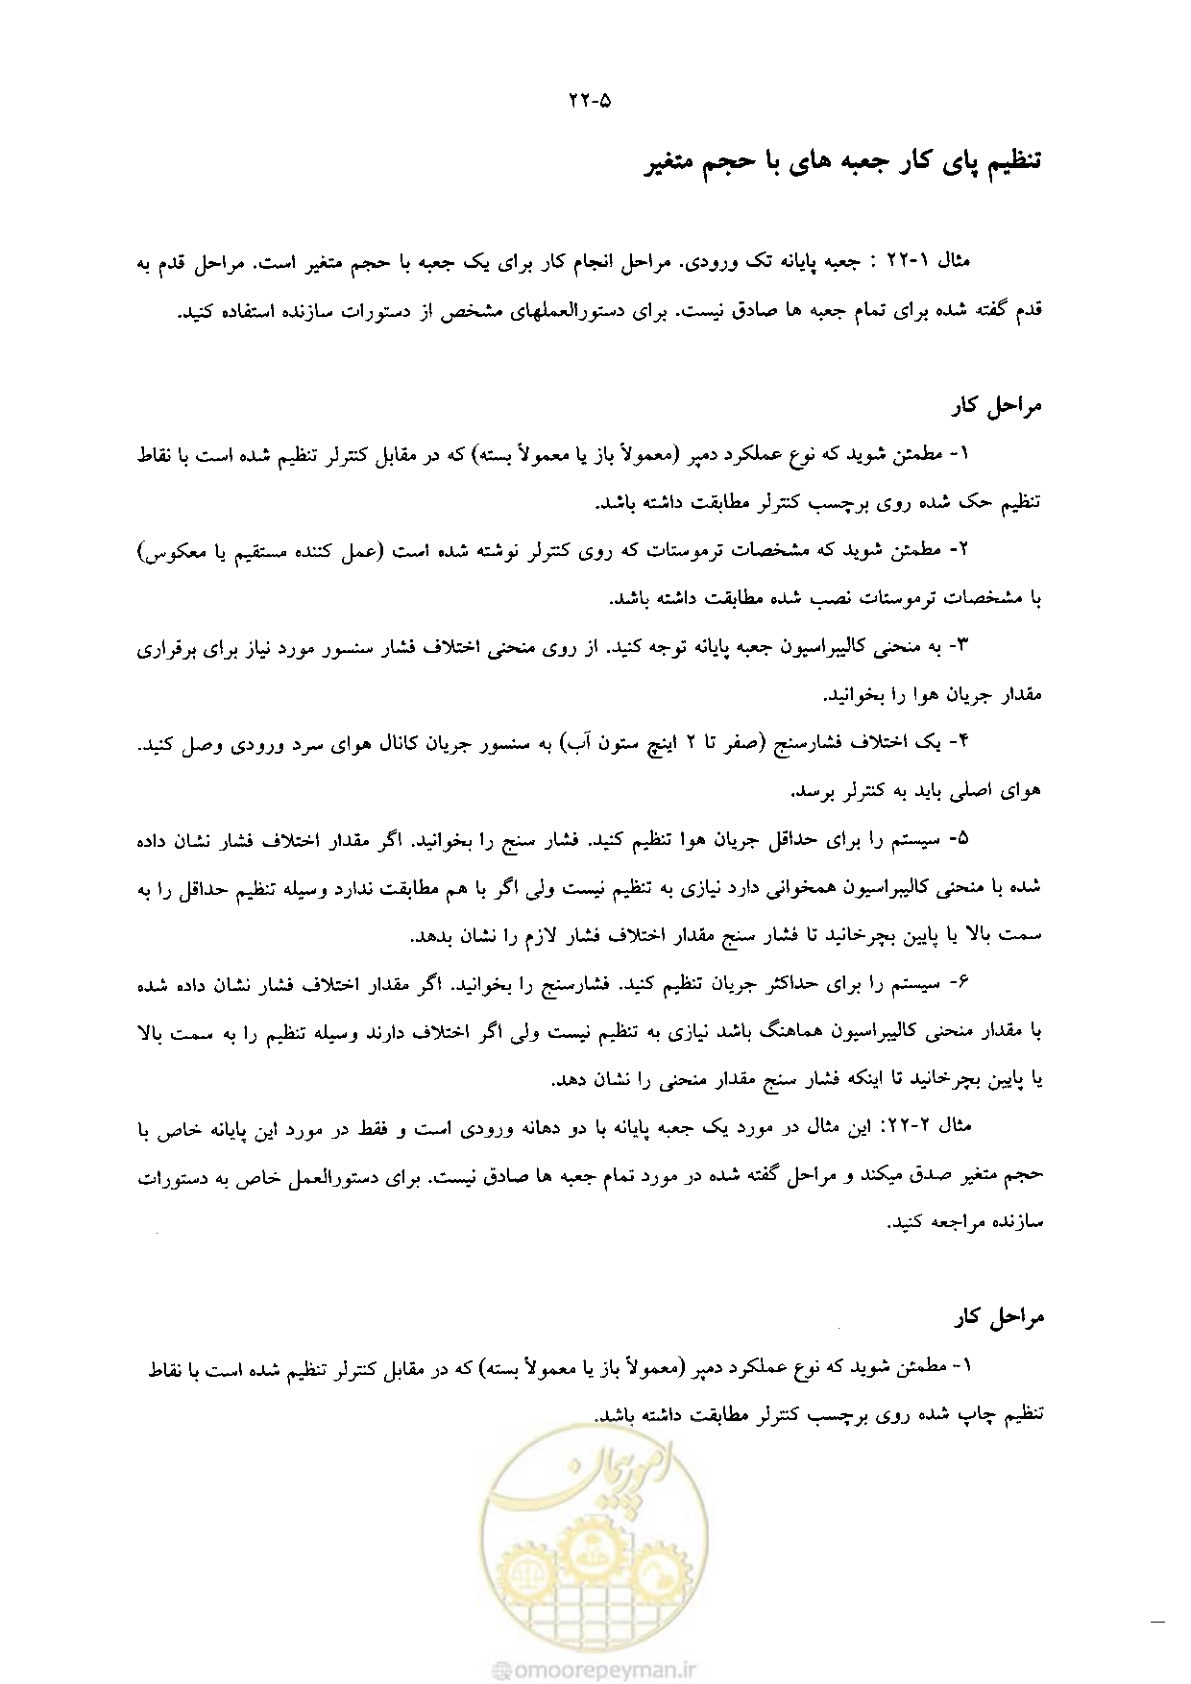 ۲۲-۵
تنظیم پای کار جعبه های با حجم متغیر
مثال ۱-۲۲ : جعبه پایانه تک ورودی. مراحل انجام کار برای یک جعبه با حجم متغیر است. مراحل قدم به
قدم گفته شده برای تمام جعبه ها صادق نیست. برای دستورالعملهای مشخص از دستورات سازنده استفاده کنید.
مراحل کار
۱- مطمئن شوید که نوع عملکرد دمپر (معمولاً باز یا معمولاً بسته) که در مقابل کنترلر تنظیم شده است با نقاط
تنظیم حک شده روی برچسب کنترلر مطابقت داشته باشد.
۲- مطمئن شوید که مشخصات ترموستات که روی کنترلر نوشته شده است (عمل کننده مستقیم یا معکوس)
با مشخصات ترموستات نصب شده مطابقت داشته باشد.
۳- به منحنی کالیبراسیون جعبه پایانه توجه کنید. از روی منحنی اختلاف فشار سنسور مورد نیاز برای برقراری
مقدار جریان هوا را بخوانید.
۴- یک اختلاف فشارسنج (صفر تا ۲ اینچ ستون آب) به سنسور جریان کانال هوای سرد ورودی وصل کنید.
هوای اصلی باید به کنترلر برسد.
۵- سیستم را برای حداقل جریان هوا تنظیم کنید. فشار سنج را بخوانید. اگر مقدار اختلاف فشار نشان داده
شده با منحنی کالیبراسیون همخوانی دارد نیازی به تنظیم نیست ولی اگر با هم مطابقت ندارد وسیله تنظیم حداقل را به
سمت بالا یا پایین بچرخانید تا فشار سنج مقدار اختلاف فشار لازم را نشان بدهد.
۶- سیستم را برای حداکثر جریان تنظیم کنید. فشارسنج را بخوانید. اگر مقدار اختلاف فشار نشان داده شده
با مقدار منحنی کالیبراسیون هماهنگ باشد نیازی به تنظیم نیست ولی اگر اختلاف دارند وسیله تنظیم را به سمت بالا
یا پایین بچرخانید تا اینکه فشار سنج مقدار منحنی را نشان دهد.
مثال ۲-۲۲: این مثال در مورد یک جعبه پایانه با دو دهانه ورودی است و فقط در مورد این پایانه خاص با
حجم متغیر صدق میکند و مراحل گفته شده در مورد تمام جعبه ها صادق نیست. برای دستورالعمل خاص به دستورات
سازنده مراجعه کنید.
مراحل کار
۱- مطمئن شوید که نوع عملکرد دمپر (معمولاً باز یا معمولاً بسته) که در مقابل کنترلر تنظیم شده است با نقاط
تنظیم چاپ شده روی برچسب کنترلر مطابقت داشته باشد.
امور پیمان
@omoorepeyman.ir